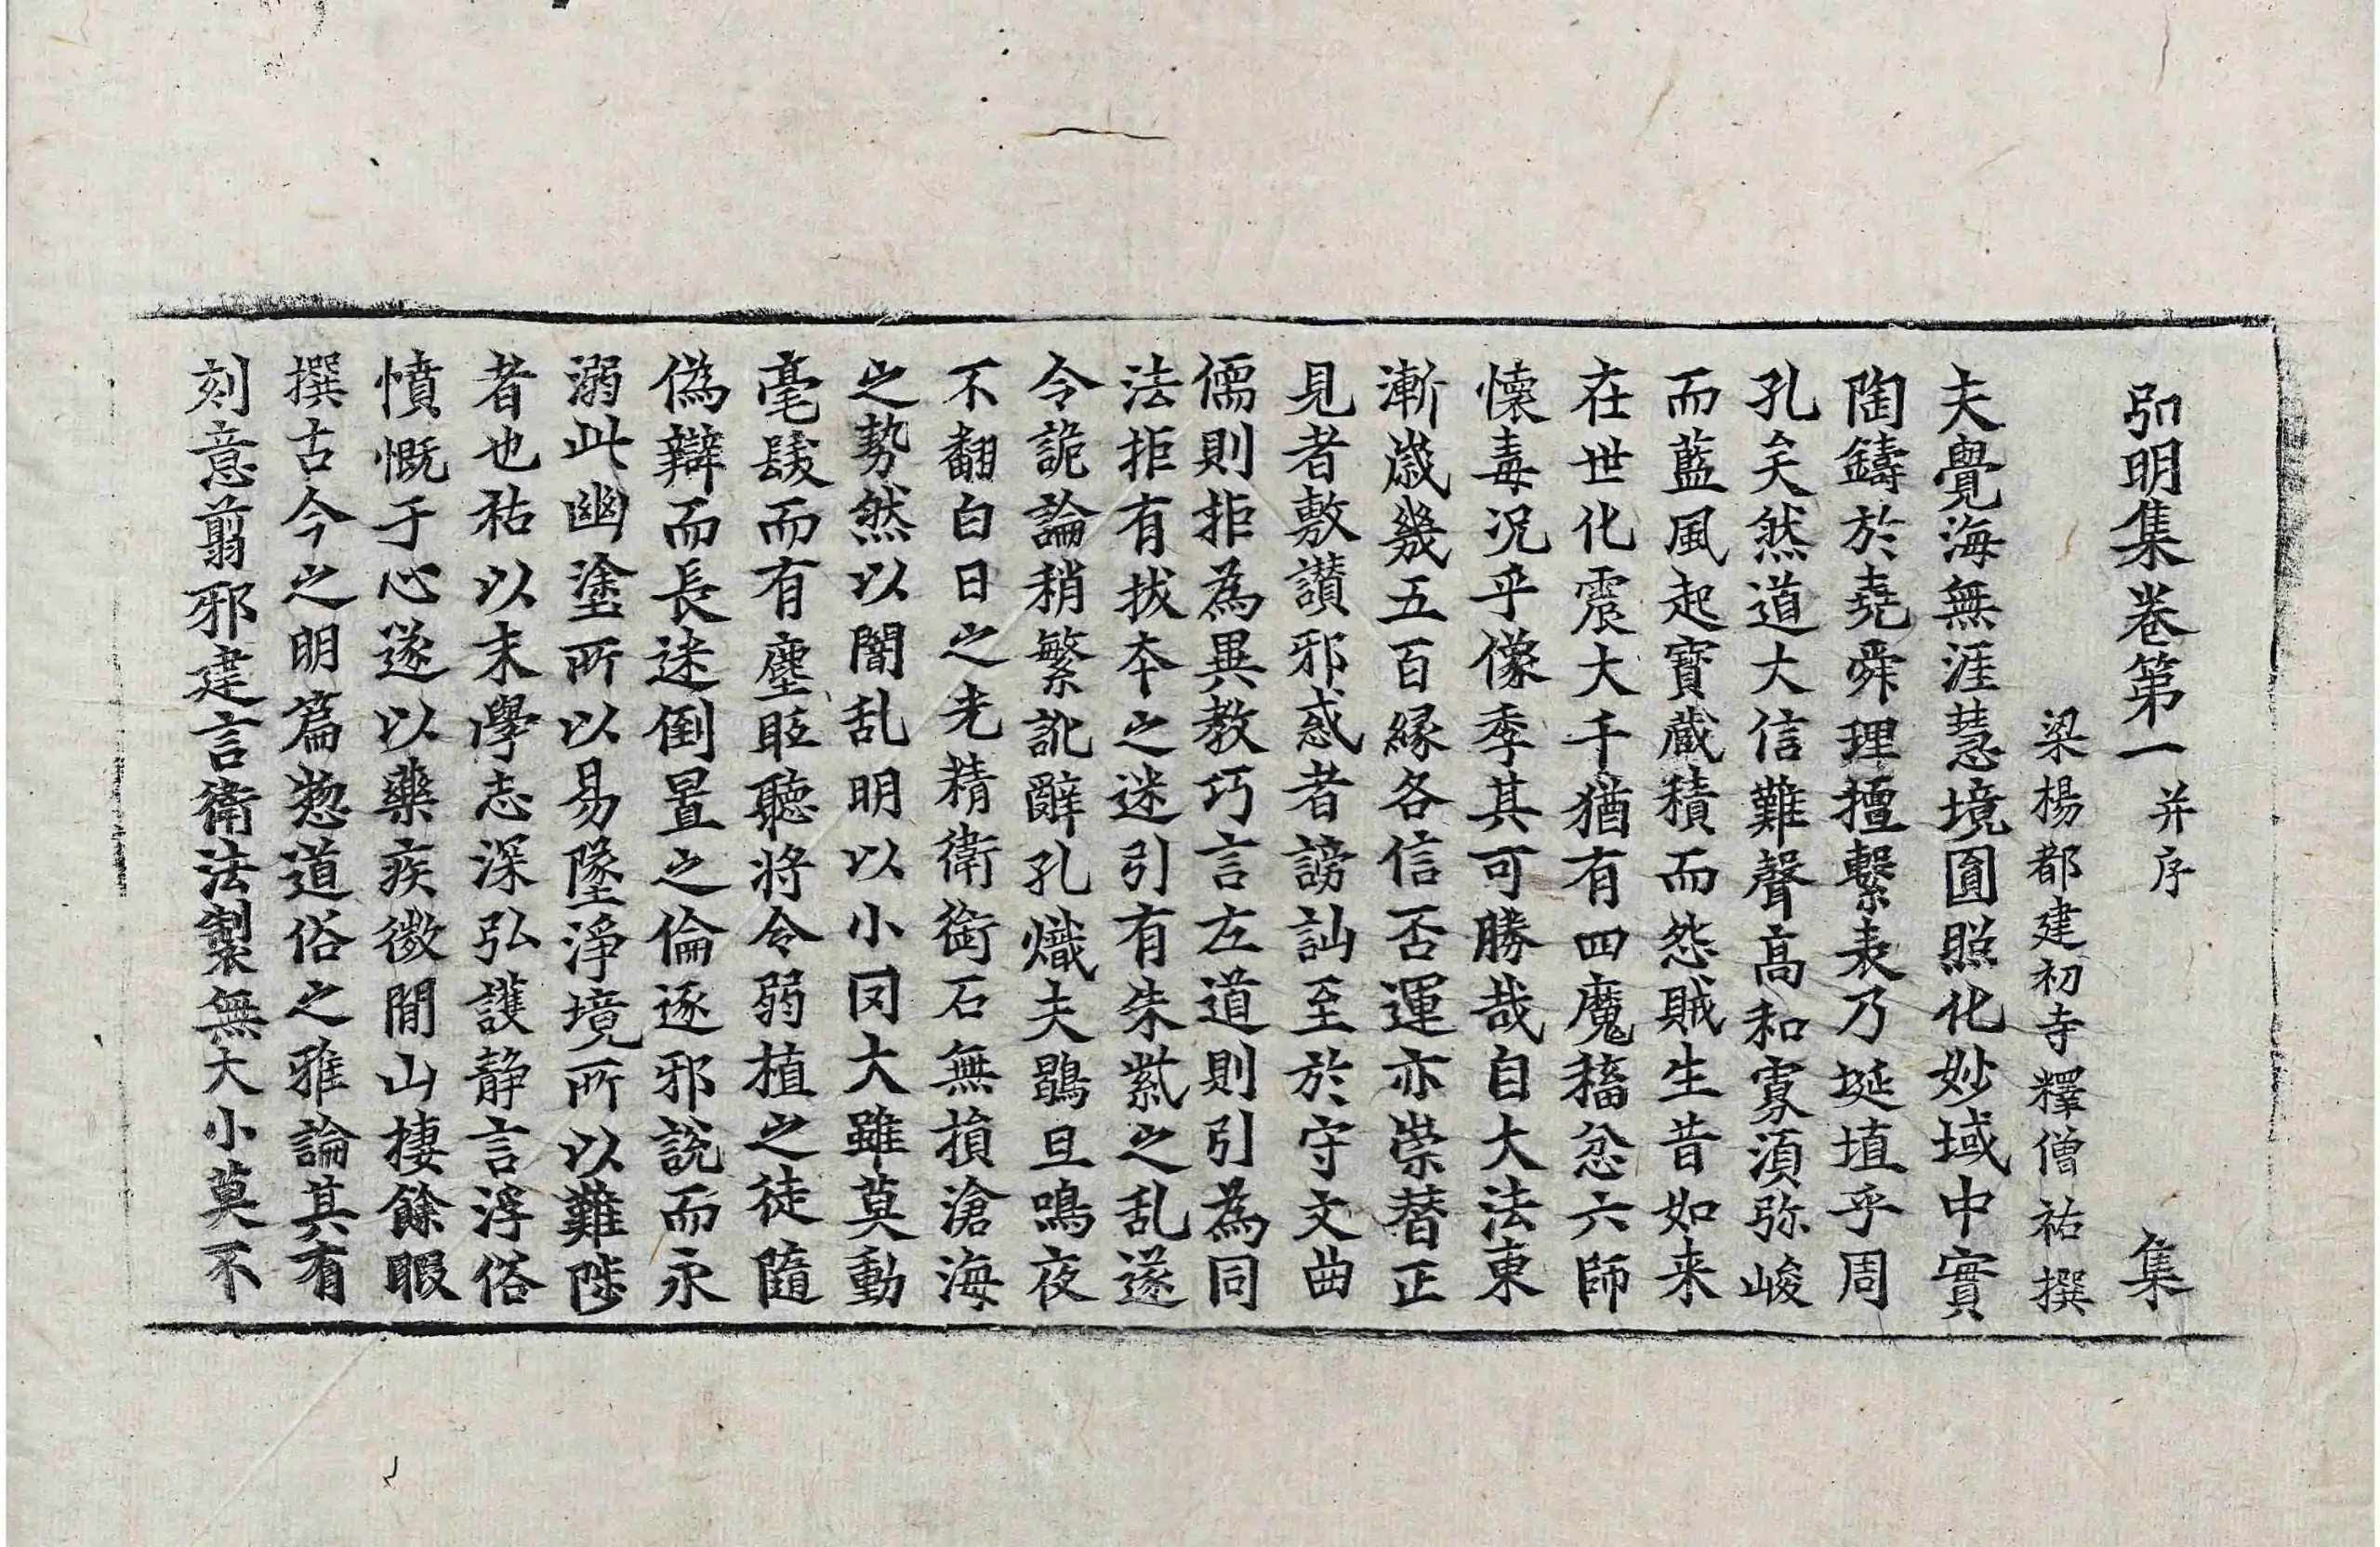 弘明集卷第一 并序 集
梁楊都建初寺釋僧祐撰
夫覺海無涯慧境圓照化妙域中實
陶鑄於堯舜理擅繫表乃埏埴乎周
孔矣然道大信難聲高和寡須弥峻
而藍風起寶蔵積而怨賊生昔如来
在世化震大千猶有四魔稸忿六師
懐毒況乎像季其可勝哉自大法東
漸歳幾五百縁各信否運亦崇替正
見者敷讃邪惑者謗訕至於守文曲
儒則拒為異教巧言左道則引為同
法拒有拔本之迷引有朱紫之乱遂
令詭論稍繁訛辭孔熾夫鶡旦鳴夜
不翻白日之光精衛銜石無損滄海
之勢然以闇乱明以小罔大雖莫動
毫髮而有塵眂聽将令弱植之徒隨
偽辯而長迷倒置之倫逐邪説而永
溺此幽塗所以易墜淨境所以難陟
者也祐以末學志深弘護静言浮俗
憤慨于心遂以藥疾微閒山棲餘暇
撰古今之明篇惣道俗之雅論其有
刻意翦邪建言衛法製無大小莫不